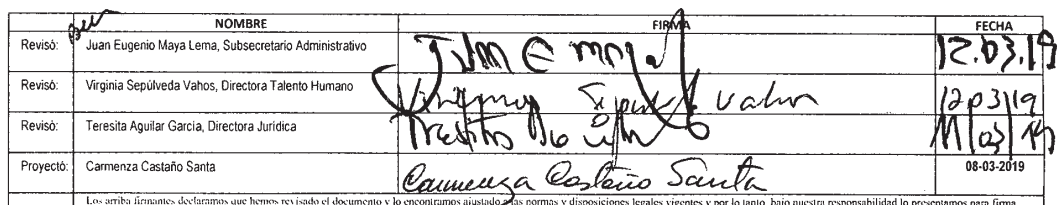 NOMBRE FIRMA FECHA
Revisó: Juan Eugenio Maya Lema, Subsecretario Administrativo Juan E maya 12.03.19
Revisó: Virginia Sepúlveda Vahos, Directora Talento Humano Virginia Sepulveda Vahos 12 03/19
Revisó: Teresita Aguilar García, Directora Jurídica 11/03/19
Proyectó: Carmenza Castaño Santa Carmenza Castaño Santa 08-03-2019
Los arriba firmantes declaramos que hemos revisado el documento y lo encontramos ajustado a las normas y disposiciones legales vigentes y por lo tanto, bajo nuestra responsabilidad lo presentamos para firma.